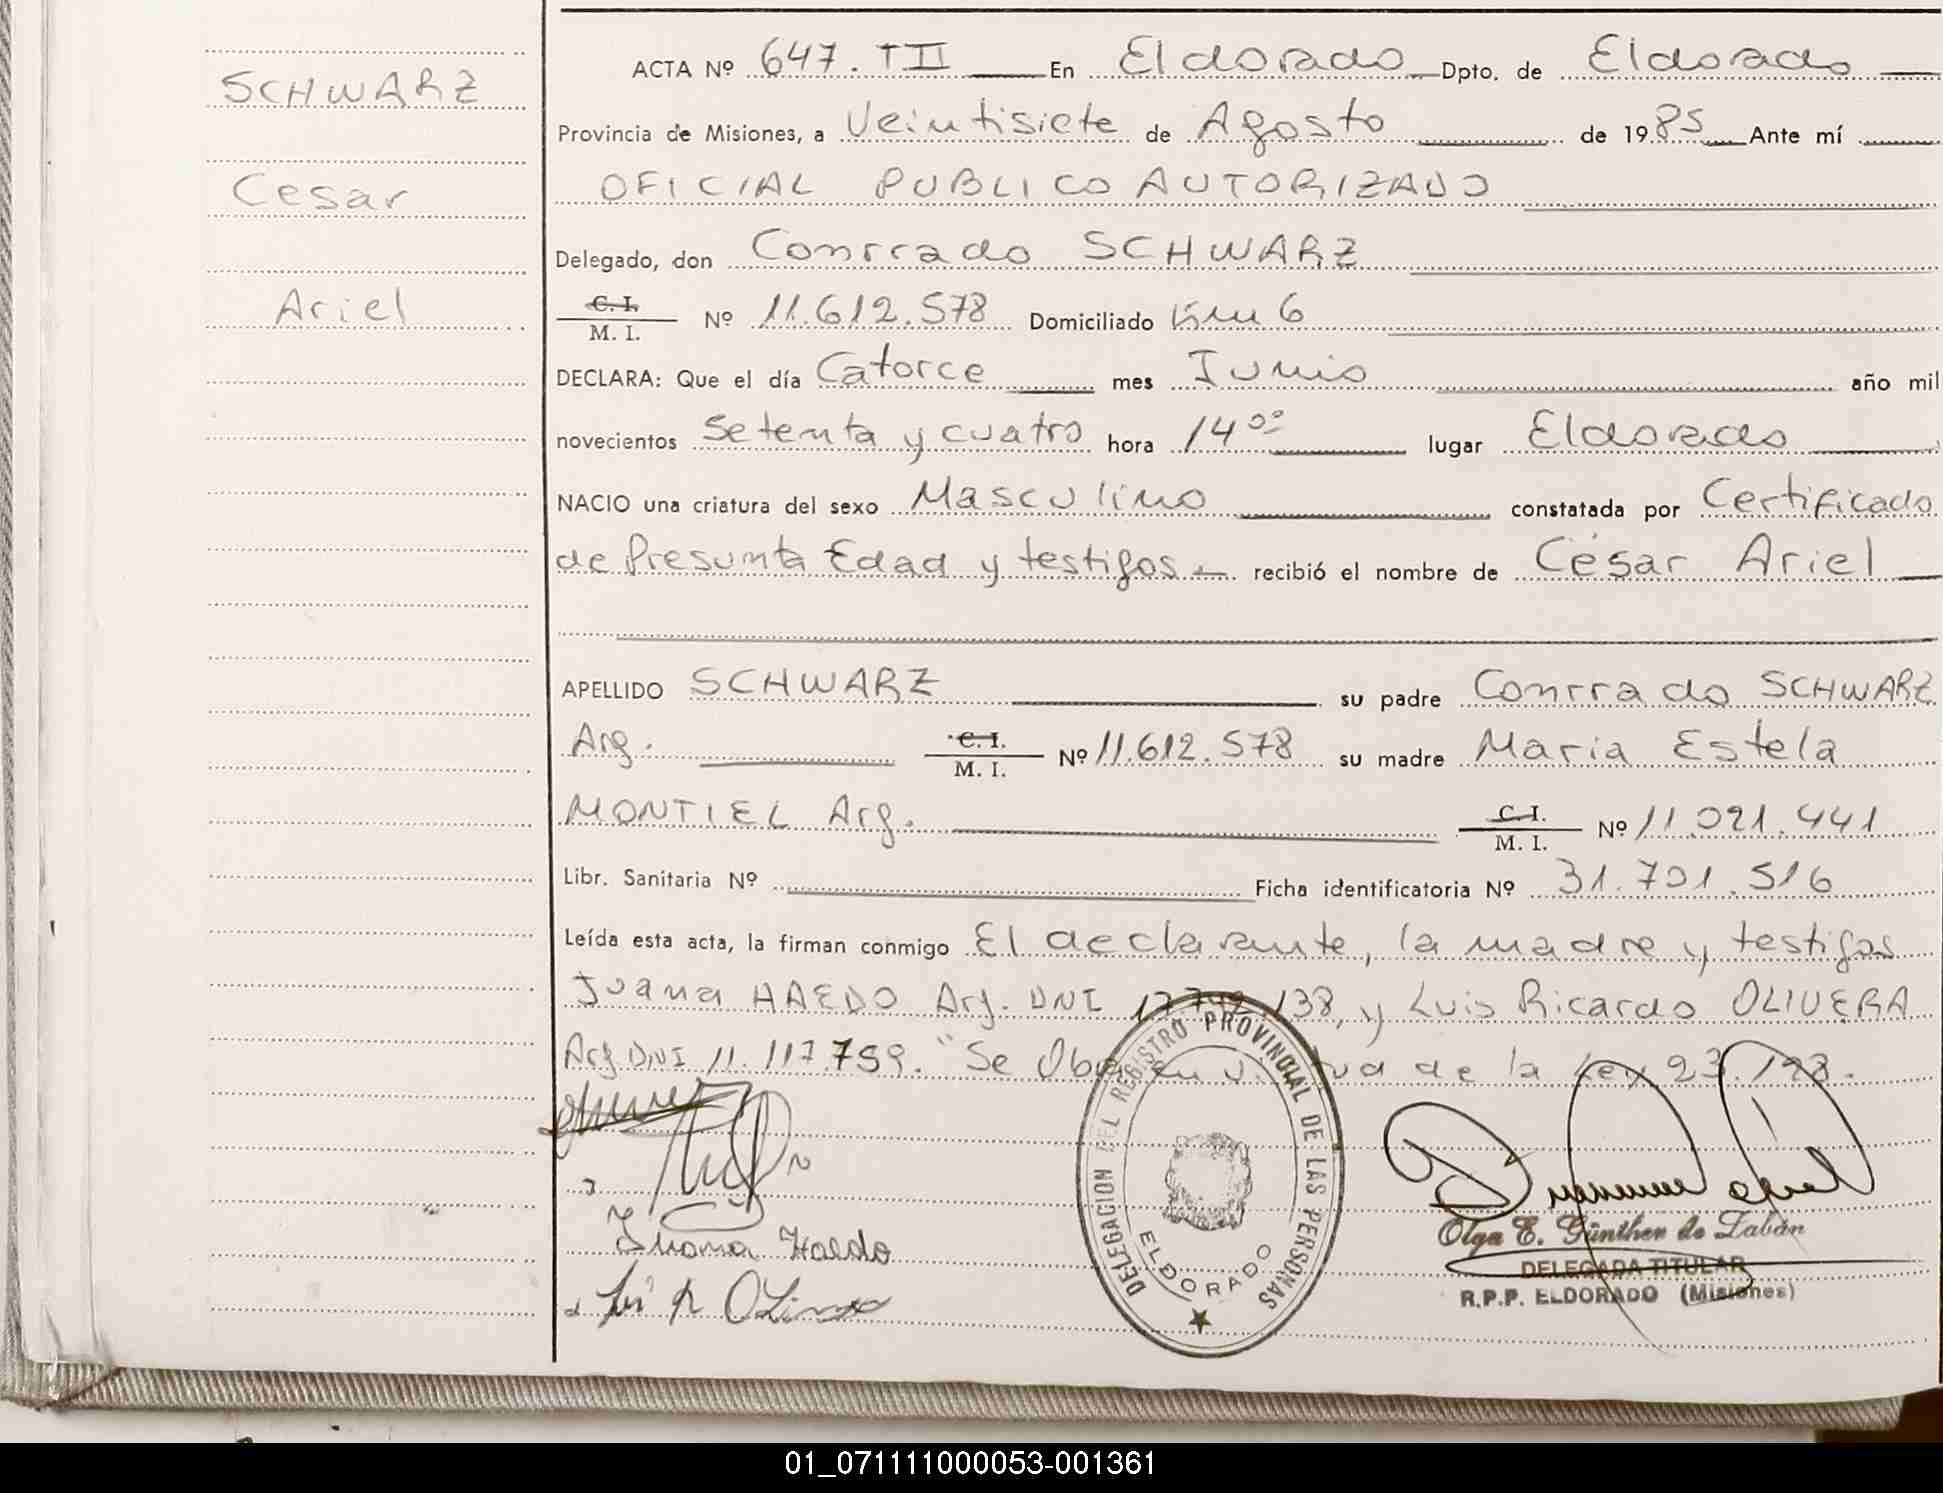 SCHWARZ
Cesar
Ariel
ACTA Nº 647. TII En Eldorado Dpto. de Eldorado
Provincia de Misiones, a Veintisiete de Agosto de 1985 Ante mí
OFICIAL PUBLICO AUTORIZADO
Delegado, don Conrrado SCHWARZ
C. I.
M. I. Nº 11.612.578 Domiciliado Km 6
DECLARA: Que el día Catorce mes Junio año mil
novecientos Setenta y cuatro hora 14⁰⁰ lugar Eldorado
NACIO una criatura del sexo Masculino constatada por Certificado
de Presunta Edad y testigos recibió el nombre de César Ariel
APELLIDO SCHWARZ su padre Conrrado SCHWARZ
Arg. C. I. M. I. Nº 11.612.578 su madre Maria Estela
MONTIEL Arg. C. I. M. I. Nº 11.021.441
Libr. Sanitaria Nº Ficha identificatoria Nº 31.701.516
Leída esta acta, la firman conmigo El declarante, la madre y testigos
Juana HAEDO Arg. DNI 138, y Luis Ricardo OLIVERA
Arg DNI 11.117.759. "Se de la Ley 23.
Juana Haedo
DELEGACION DEL REGISTRO PROVINCIAL DE LAS PERSONAS
ELDORADO
Olga E. Günther de Zabán
DELEGADA TITULAR
R.P.P. ELDORADO (Misiones)
01_071111000053-001361